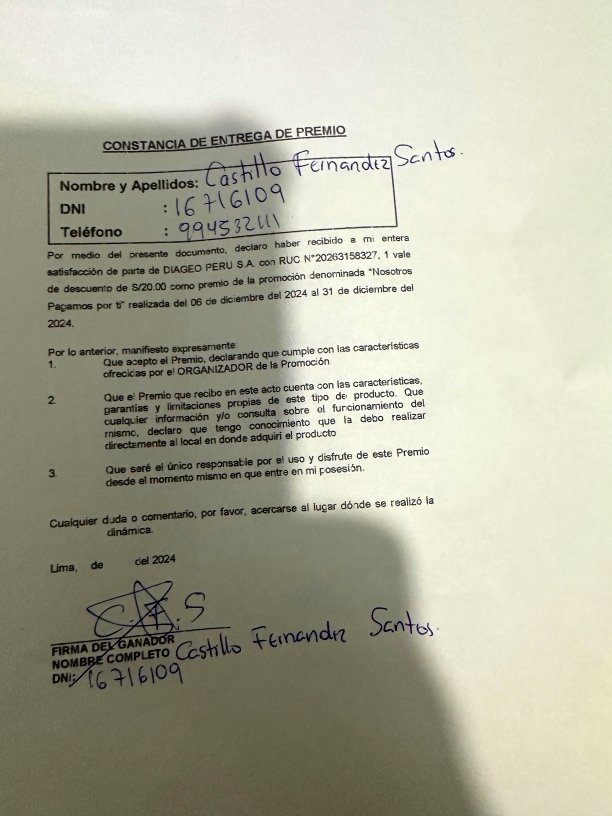 CONSTANCIA DE ENTREGA DE PREMIO
Nombre y Apellidos: Castillo Fernandez Santos.
DNI : 16716109
Teléfono : 994532111
Por medio del presente documento, declaro haber recibido a mi entera
satisfacción de parte de DIAGEO PERU S.A. con RUC N°20263158327, 1 vale
de descuento de S/20.00 como premio de la promoción denominada "Nosotros
Pagamos por ti" realizada del 06 de diciembre del 2024 al 31 de diciembre del
2024.
Por lo anterior, manifiesto expresamente:
1. Que acepto el Premio, declarando que cumple con las características
ofrecidas por el ORGANIZADOR de la Promoción
2. Que el Premio que recibo en este acto cuenta con las características,
garantías y limitaciones propias de este tipo de producto. Que
cualquier información y/o consulta sobre el funcionamiento del
mismo, declaro que tengo conocimiento que la debo realizar
directamente al local en donde adquirí el producto
3. Que seré el único responsable por el uso y disfrute de este Premio
desde el momento mismo en que entre en mi posesión.
Cualquier duda o comentario, por favor, acercarse al lugar dónde se realizó la
dinámica.
Lima, de del 2024
C.F.S
FIRMA DEL GANADOR
NOMBRE COMPLETO Castillo Fernandez Santos.
DNI: 16716109